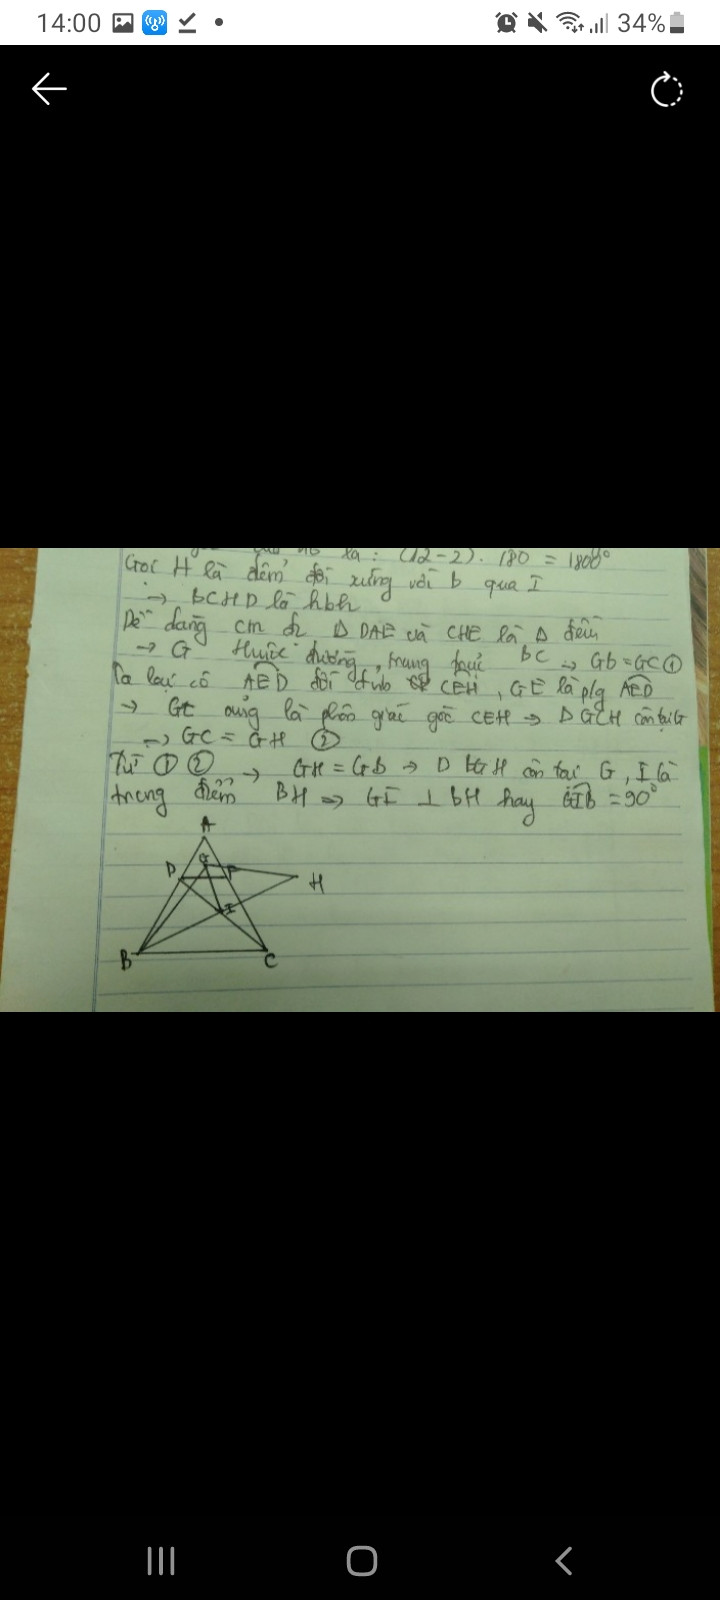 14:00
34%
xạ : (12-2). 180 = 1800°
Gọi H là điểm đối xứng với b qua I
→ BCHD là hbh
Dễ dàng cm đc Δ DAE và CHE là Δ đều
→ G thuộc đường trung trực BC → Gb = GC ①
Ta lại có AED đối đỉnh CEH, GE là p/g AED
→ GE cũng là phân giác góc CEH → Δ GCH cân tại G
→ GC = GH ②
Từ ① ② → GH = GB → Δ BGH cân tại G, I là
trung điểm BH => GI ⊥ BH hay GIB = 90°
A
D G E
H
I
B C